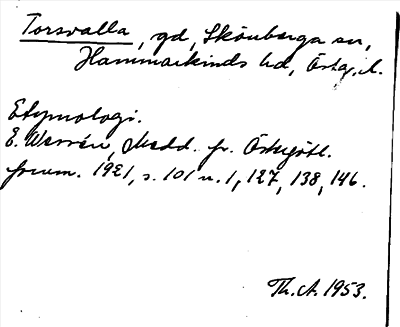 Torsvalla, gd, Skönberga sn,
Hammarkinds hd, Östg. l.
Etymologi.
E. Wessén, Medd. fr. Östergötl.
fornm. 1921, s. 101 n. 1, 127, 138, 146.
Th. A. 1953.